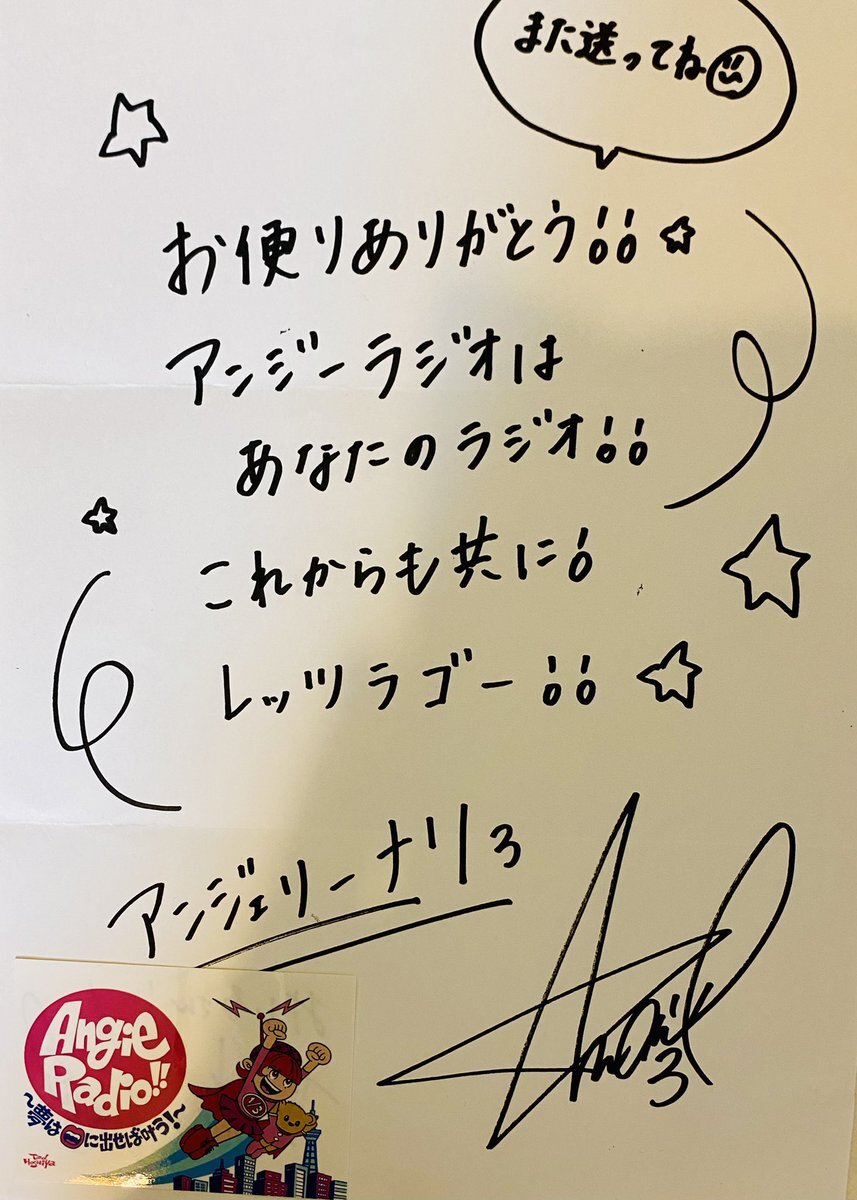 また送ってね
お便りありがとう!!
アンジーラジオは
あなたのラジオ!!
これからも共に!
レッツラゴー!!
アンジェリーナ1/3
Angie
Radio!!
〜夢は口に出せば叶う!〜
1/3